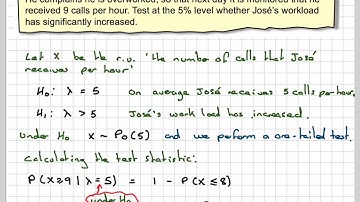 He complains he is overworked, so that next day it is monitored that he
received 9 calls per hour. Test at the 5% level whether José's workload
has significantly increased.
Let X be the r.v. 'the number of calls that José
receives per hour'
H₀: λ = 5 On average José receives 5 calls per hour.
H₁: λ > 5 José's work load has increased.
under H₀ X ~ P₀(5) and we perform a one-tailed test.
Calculating the test statistic:
P(X≥9 | λ=5) = 1 - P(X ≤ 8)
under H₀